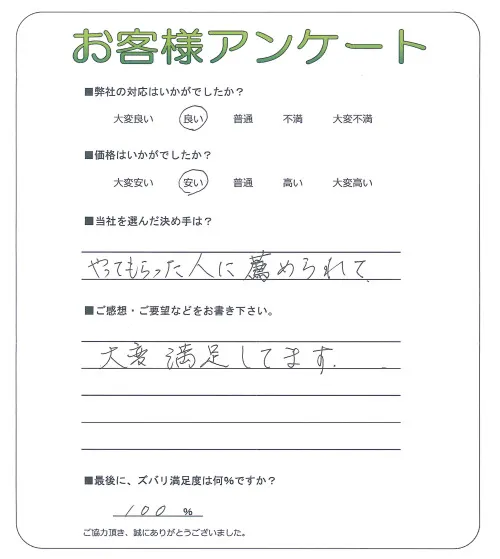 お客様アンケート
■弊社の対応はいかがでしたか？
大変良い 良い 普通 不満 大変不満
■価格はいかがでしたか？
大変安い 安い 普通 高い 大変高い
■当社を選んだ決め手は？
やってもらった人に薦められて、
■ご感想・ご要望などをお書き下さい。
大変満足してます.
■最後に、ズバリ満足度は何％ですか？
100 %
ご協力頂き、誠にありがとうございました。